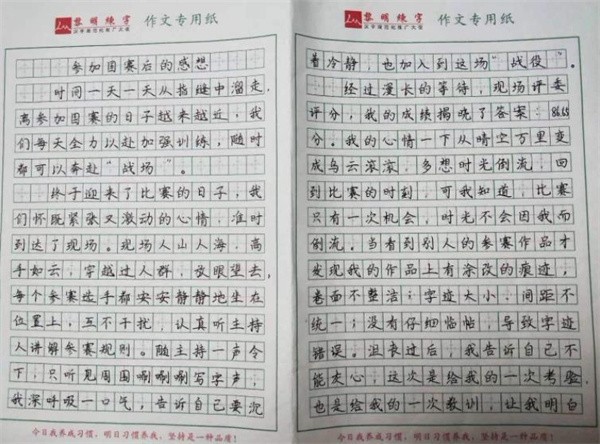 黎明练字
作文专用纸
参加国赛后的感想
时间一天一天从指缝中溜走，
离参加国赛的日子越来越近，我
们每天全力以赴加强训练，随时
都可以奔赴“战场”。
终于迎来了比赛的日子，我
们怀既紧张又激动的心情，准时
到达了现场。现场人山人海，高
手如云，穿越过人群，放眼望去，
每个参赛选手都安安静静地坐在
位置上，互不干扰，认真听主持
人讲解参赛规则。随主持一声令
下，只听见周围唰唰唰写字声，
我深呼吸一口气，告诉自己要沉
今日我养成习惯，明日习惯养我，坚持是一种品质！
黎明练字
作文专用纸
着冷静，也加入到这场“战役”。
经过漫长的等待，现场评委
评分，我的成绩揭晓了答案：86.65
分。我的心情一下从晴空万里变
成乌云滚滚，多想时光倒流，回
到比赛的时刻，可我知道，比赛
只有一次机会，时光不会因我而
倒流。当看到别人的参赛作品才
发现我的作品上有涂改的痕迹，
卷面不整洁；字迹大小、间距不
统一；没有仔细临帖，导致字迹
错误。沮丧过后，我告诉自己不
能灰心，这次是给我的一次考验，
也是给我的一次教训，让我明白
今日我养成习惯，明日习惯养我，坚持是一种品质！